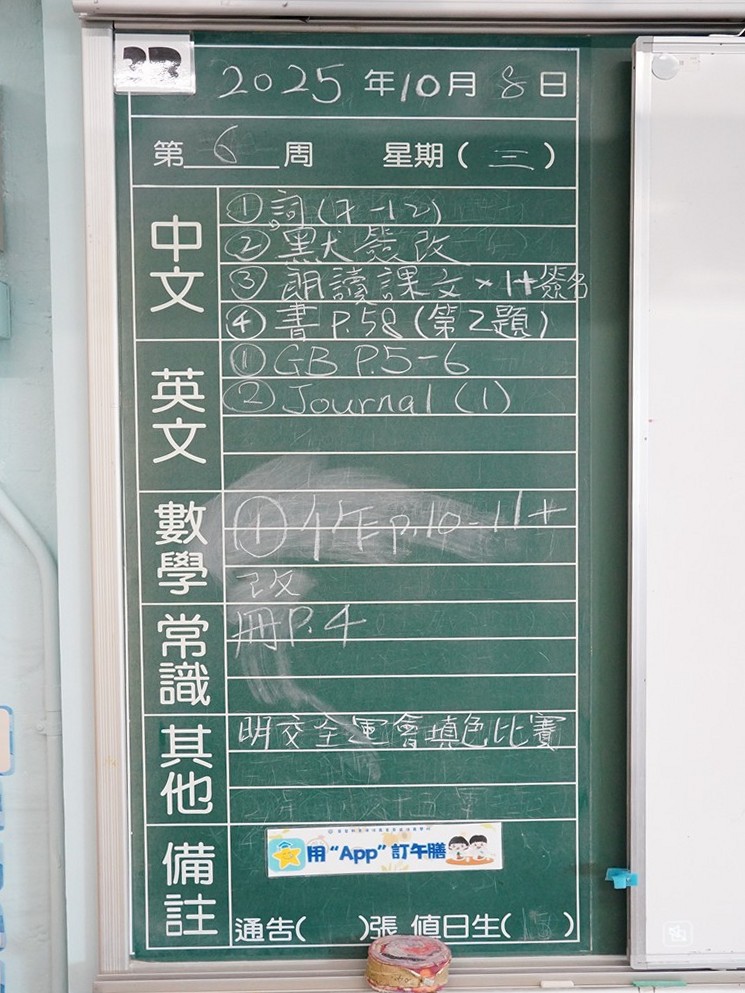 2025年10月8日
第6周 星期(三)
中文
①詞(7-12)
②默簽改
③朗讀課文×1+簽名
④書P.58(第2題)
英文
①GB P.5-6
②Journal(1)
數學
①个作P.10-11+
改
常識
冊P.4
其他
明交全運會填色比賽
備註
用“App”訂午膳
通告( )張 值日生( )